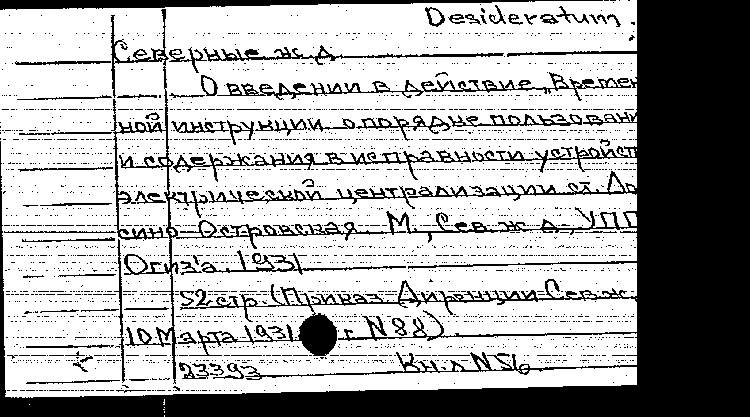 Desideratum.
Северные ж. д.
О введении в действие „Времен
ной инструкции о порядке пользовани
и содержания в исправности устройст
электрической централизации ст. Ло
сино-Островская. М., Сев. ж. д., УПП
Огиз'а. 1931
52 стр. (Приказ Дирекции Сев. ж.
10 Марта 1931 г. N 88).
23393 Кн. л N 56